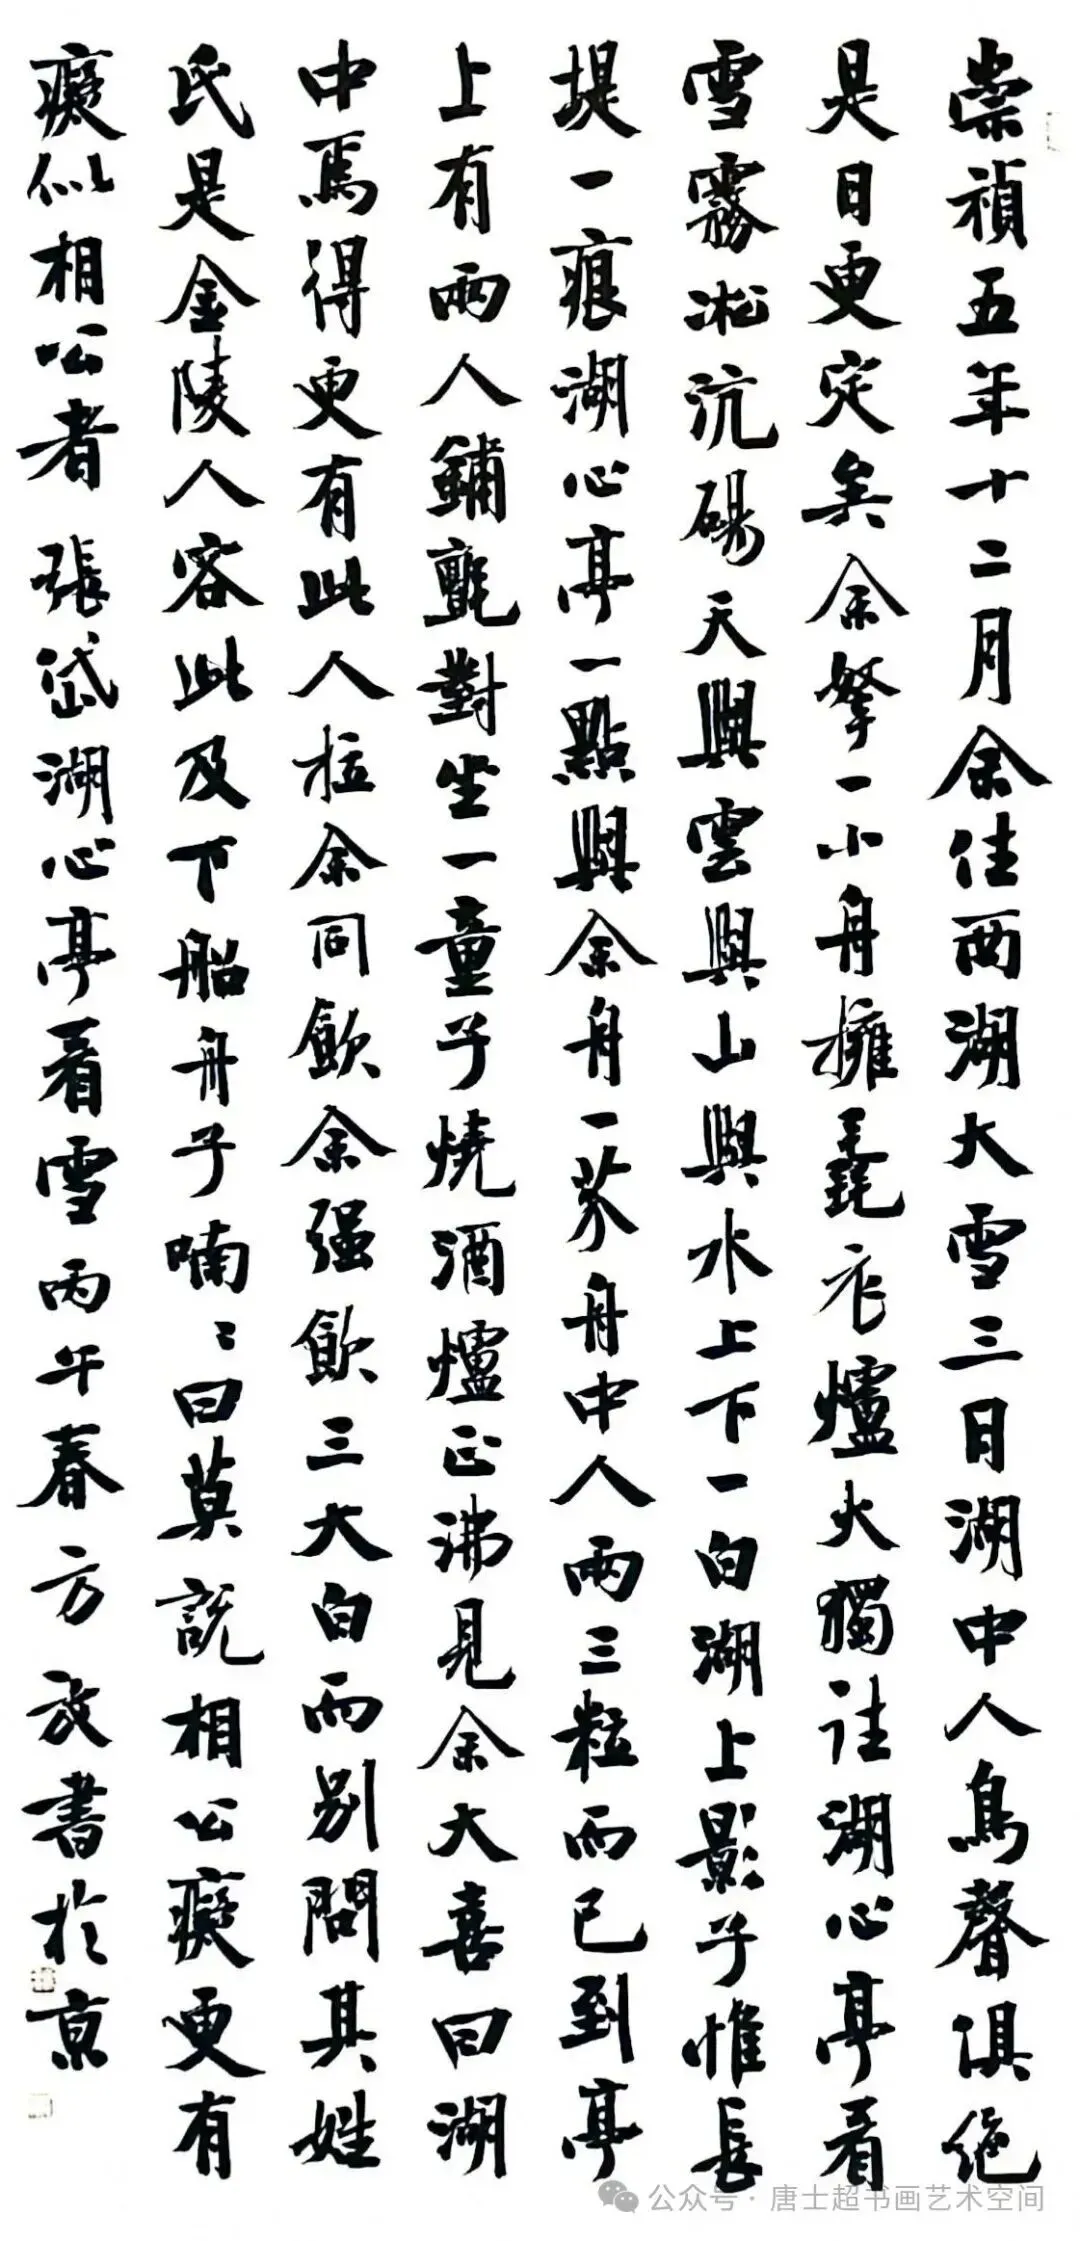 崇禎五年十二月余住西湖大雪三日湖中人鳥聲俱絕
是日更定矣余拏一小舟擁毳衣爐火獨往湖心亭看
雪霧凇沆碭天與雲與山與水上下一白湖上影子惟長
堤一痕湖心亭一點與余舟一芥舟中人兩三粒而已到亭
上有兩人鋪氈對坐一童子燒酒爐正沸見余大喜曰湖
中焉得更有此人拉余同飲余强飲三大白而别問其姓
氏是金陵人客此及下船舟子喃〻曰莫説相公癡更有
癡似相公者 張岱湖心亭看雪丙午春方放書於京
公众号·唐士超书画艺术空间